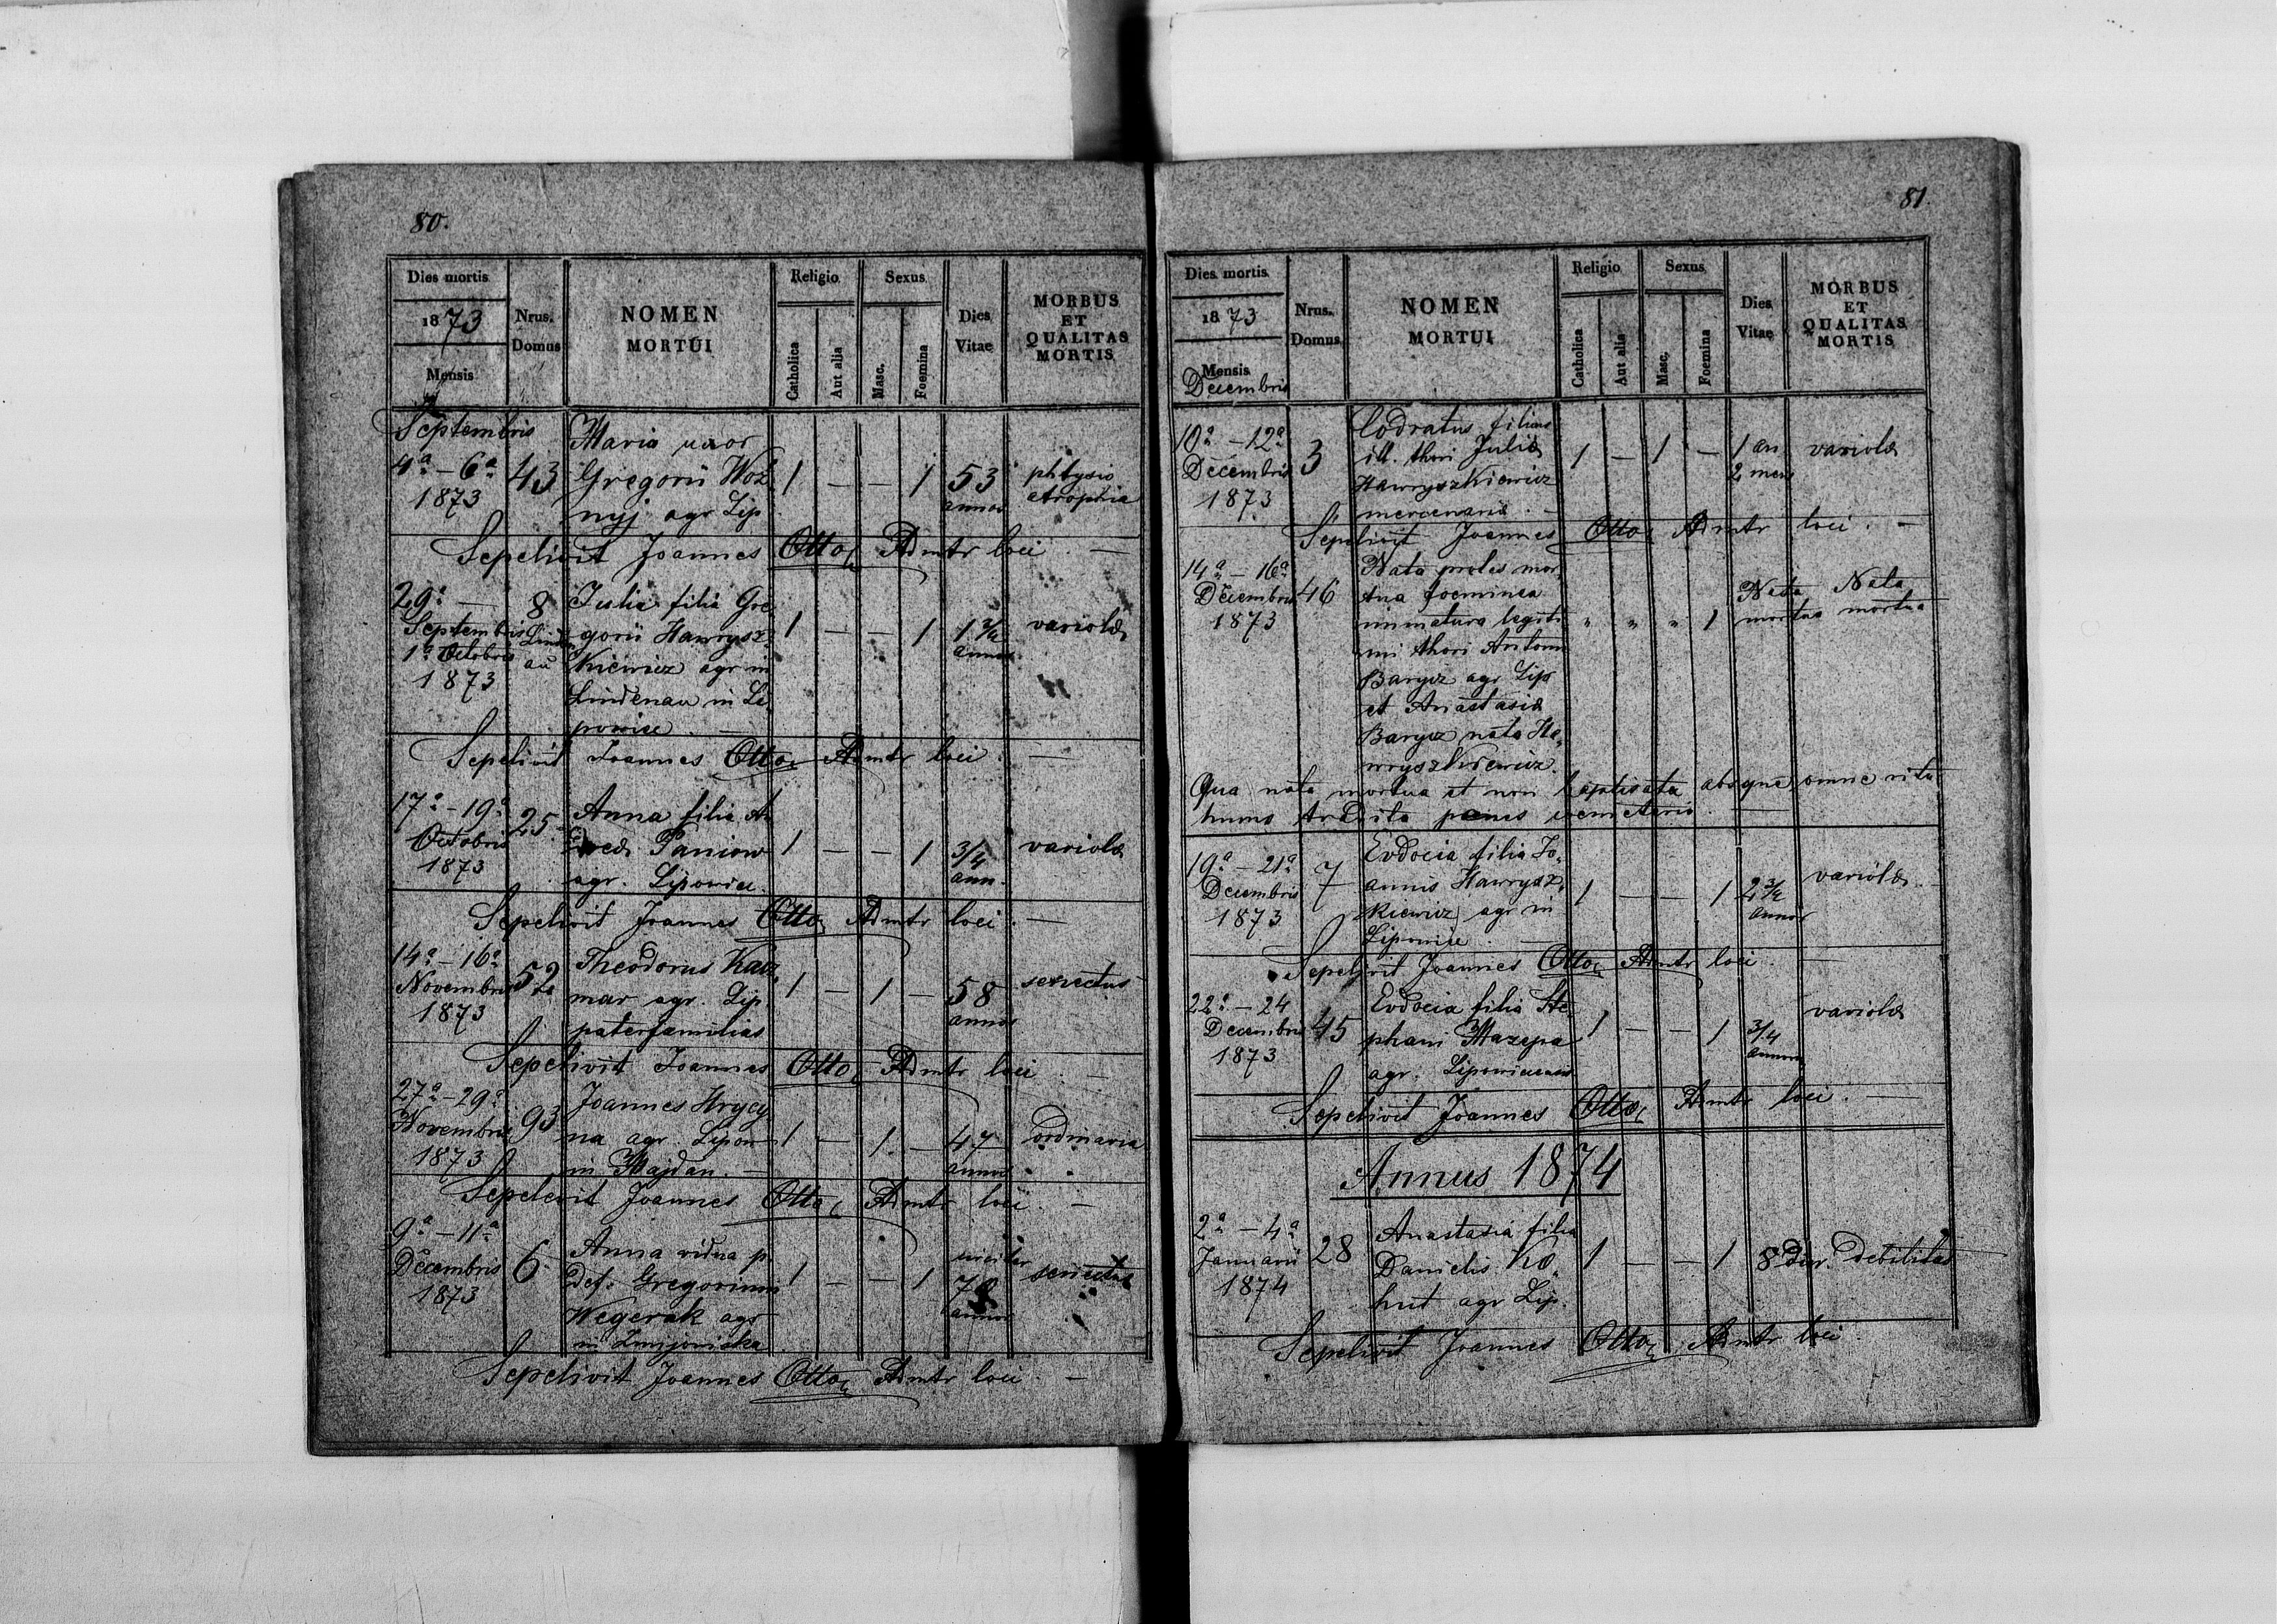 80.
Dies mortis
1873
Mensis
Nrus.
Domus
NOMEN
MORTUI
Religio
Catholica
Aut alia
Sexus
Masc.
Foemina
Dies
Vitae
MORBUS
ET
QUALITAS
MORTIS
Septembris
4ª – 6ª
1873
43
Maria uxor
Gregorii Woź
nyj agr Lip
1 — — 1
53
annos
phtysis
atrophia
Sepelivit Joannes Otto Admtr loci . —
29ª —
Septembris
1ª Octobris
1873
8
Linden
au
Julia filia Gre
gorii Hawrysz
Kiewicz agr in
Lindenau in Li
powice . —
1 — — 1
1 3/4
annos
variola
Sepelivit Joannes Otto Admtr loci . —
17ª – 19ª
Octobris
1873
25
Anna filia
Paniow
agr. Lipowice.
1 — — 1
3/4
ann.
variola
Sepelivit Joannes Otto Admtr loci . —
14ª – 16ª
Novembris
1873
52
Theodorus Kacz
mar agr. Lip
paterfamilias
1 — 1 —
58
annos
senectus
Sepelivit Joannes Otto Admtr loci . —
27ª – 29ª
Novembris
1873
93
Joannes Hrycy
na agr. Lipow
in Majdan. —
1 — 1 —
47
annos
ordinaria
Sepelivit Joannes Otto Admtr loci . —
9ª – 11ª
Decembris
1873
6
Anna vidua p.
def. Gregorium
Wegerak agr
in
1 — — 1
circiter
annos
senectus
Sepelivit Joannes Otto Admtr loci . —
81
Dies mortis
1873
Mensis
Decembris
Nrus.
Domus
NOMEN
MORTUI
Religio
Catholica
Aut alia
Sexus
Masc.
Foemina
Dies
Vitae
MORBUS
ET
QUALITAS
MORTIS
10ª – 12ª
Decembris
1873
3
Codratus filius
ill. thori Julia
Hawryszkiewicz
mercenaria . —
1 — 1 —
1 an
2 mens
variola
Sepelivit Joannes Otto Admtr loci . —
14ª – 16ª
Decembris
1873
46
Nata proles mor
tua foeminea
immatura legiti
mi thori Antonii
Barycz agr Lip
et Anastasia
Barycz nata Ha,
wryszkiewicz.
" " " 1
Nata
mortua
Nata
mortua
Qua nata mortua et non baptisata absque omne ritu
humo tradita penes coemeterio . —
19ª – 21ª
Decembris
1873
7
Evdocia filia Jo,
annis Hawrysz,
kiewicz agr in
Lipowice . —
1 — — 1
2 3/4
annos
variola
Sepelivit Joannes Otto Admtr loci . —
22ª – 24
Decembris
1873
45
Evdocia filia Ste,
phani Mazepa
agr. Lipowiecens
1 — — 1
3/4
annum
variola
Sepelivit Joannes Otto Admtr loci . —
Annus 1874
2ª – 4ª
Januarii
1874
28
Anastasia filia
Danielis Ko,
hut agr Lip.
1 — — 1
8 dier.
debilitas
Sepelivit Joannes Otto Admtr loci .